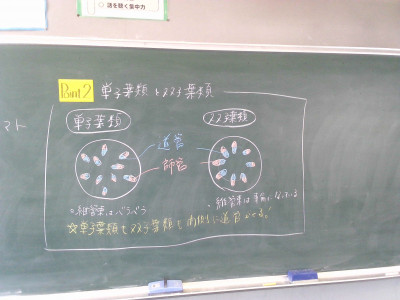 を除く集中力
Point 2 単子葉類と双子葉類
マト
単子葉類
双子葉類
道管
師管
○維管束はバラバラ
○維管束は輪になっている
☆単子葉類も双子葉類も内側に道管がある。